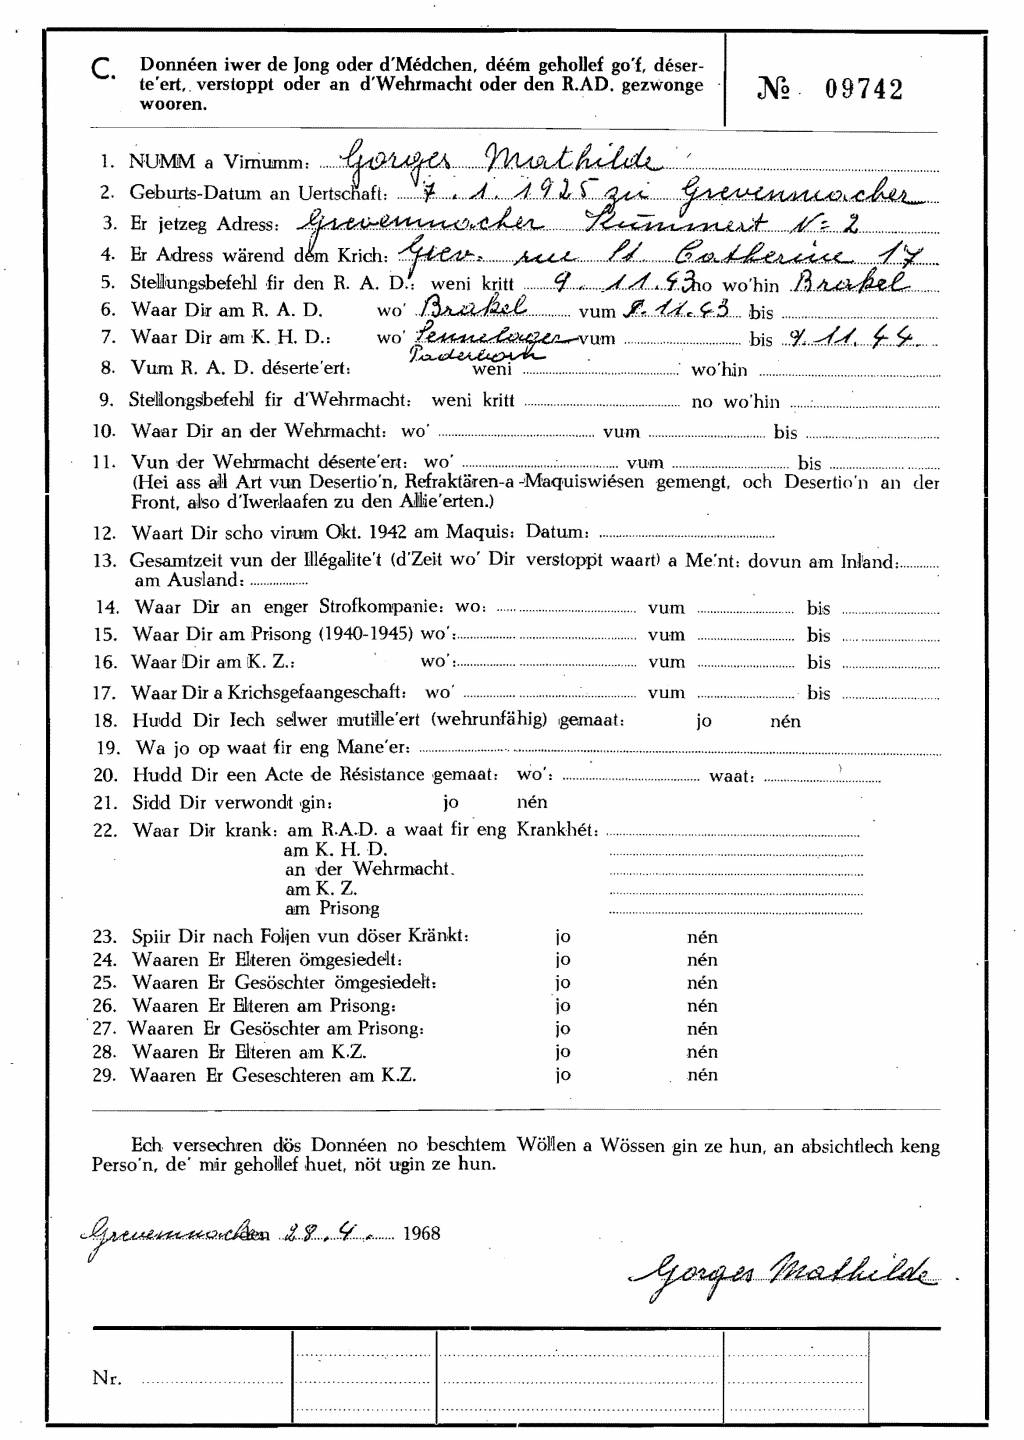 C. Donnéen iwer de Jong oder d'Médchen, déém gehollef go'f, déser-
te'ert, verstoppt oder an d'Wehrmacht oder den R.AD. gezwonge
wooren.
№ 09742
1. NUMM a Virnumm: Gorges Mathilde
2. Geburts-Datum an Uertschaft: 7.1.1925 zu Grevenmacher
3. Er jetzeg Adress: Grevenmacher Kummert N= 2
4. Er Adress wärend dem Krich: Grev. rue St Catherine 17
5. Stellungsbefehl fir den R. A. D.: weni kritt 9.11.43 no wo'hin Brakel
6. Waar Dir am R. A. D. wo' Brakel vum 9.11.43 bis
7. Waar Dir am K. H. D.: wo' Sennelager vum bis 9.11.44.
Paderborn
8. Vum R. A. D. déserte'ert: weni wo'hin
9. Stellongsbefehl fir d'Wehrmacht: weni kritt no wo'hin
10. Waar Dir an der Wehrmacht: wo' vum bis
11. Vun der Wehrmacht déserte'ert: wo' vum bis
(Hei ass all Art vun Desertio'n, Refraktären-a-Maquiswiésen gemengt, och Desertio'n an der
Front, also d'Iwerlaafen zu den Allie'erten.)
12. Waart Dir scho virum Okt. 1942 am Maquis: Datum:
13. Gesamtzeit vun der Illégalite't (d'Zeit wo' Dir verstoppt waart) a Me'nt: dovun am Inland:
am Ausland:
14. Waar Dir an enger Strofkompanie: wo: vum bis
15. Waar Dir am Prisong (1940-1945) wo': vum bis
16. Waar Dir am K. Z.: wo': vum bis
17. Waar Dir a Krichsgefaangeschaft: wo' vum bis
18. Hudd Dir Iech selwer mutille'ert (wehrunfähig) gemaat: jo nén
19. Wa jo op waat fir eng Mane'er:
20. Hudd Dir een Acte de Résistance gemaat: wo': waat:
21. Sidd Dir verwondt gin: jo nén
22. Waar Dir krank: am R.A.D. a waat fir eng Krankhét:
am K. H. D.
an der Wehrmacht.
am K. Z.
am Prisong
23. Spiir Dir nach Foljen vun döser Kränkt: jo nén
24. Waaren Er Elteren ömgesiedelt: jo nén
25. Waaren Er Gesöschter ömgesiedelt: jo nén
26. Waaren Er Elteren am Prisong: jo nén
27. Waaren Er Gesöschter am Prisong: jo nén
28. Waaren Er Elteren am K.Z. jo nén
29. Waaren Er Geseschteren am K.Z. jo nén
Ech versechren dös Donnéen no beschtem Wöllen a Wössen gin ze hun, an absichtlech keng
Perso'n, de' mir gehollef huet, nöt ugin ze hun.
Grevenmacher 28.4. 1968
Gorges Mathilde
Nr.